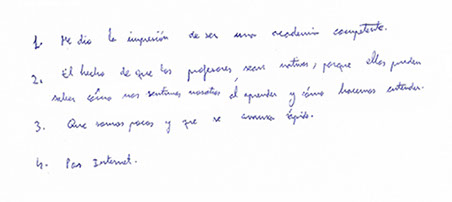 1. Me dio la impresión de ser una academia competente.
2. El hecho de que los profesores, sean nativos, porque ellos pueden
saber cómo nos sentimos nosotros al aprender y cómo hacernos entender.
3. Que somos pocos y que se avanza rápido.
4. Por Internet.